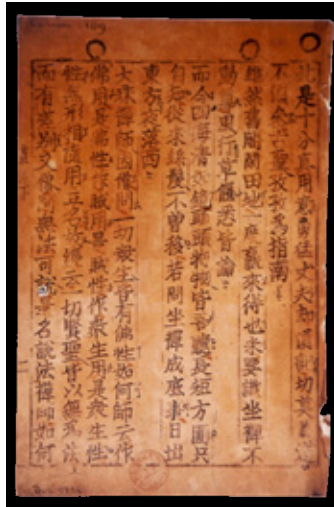 此是十分直用猛大丈夫知有切莫
不今爲指南
閑田地一度來得也未要識坐禪不
動風行草偃悉皆論
而今四海淸如鏡頭頭物物皆吾長短方圓只
自知從來絲髮不曾移若問坐禪成底事日出
東方夜落西
大珠禪師因僧問一切衆生皆有佛性如何師云作
佛用是佛性作賊用是賊性作衆生用是衆生性
性無形相隨用立名經云一切賢聖皆以無爲法
而有差別又僧問無法可說是名說法禪師如何